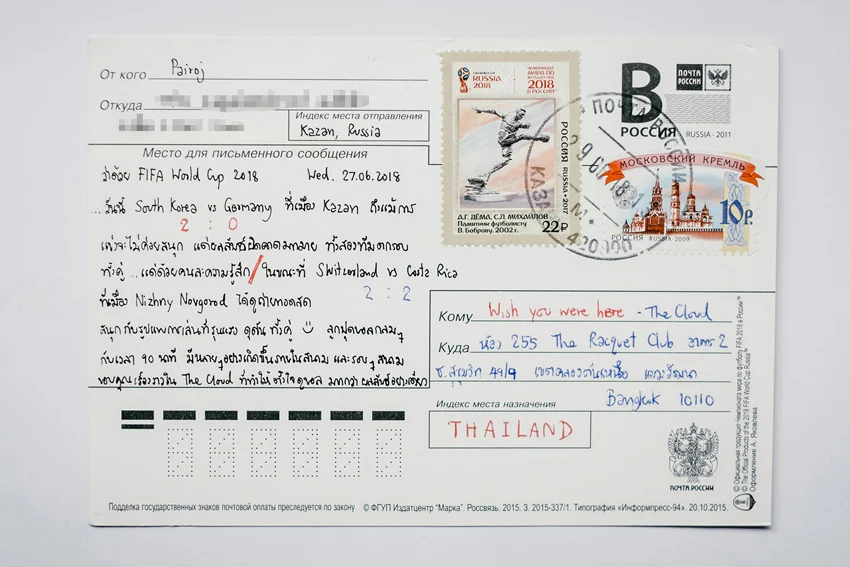 От кого Pairoj
Откуда
Индекс места отправления
Kazan, Russia
Место для письменного сообщения
ว่าด้วย FIFA World Cup 2018 Wed. 27.06.2018
...วันนี้ South Korea vs Germany ที่เมือง Kazan ถึงแม้การ
2 : 0
แข่งจะไม่ค่อยสนุก แต่ผลลัพธ์ผิดคาดมากมาย ทั้งสองทีมตกรอบ
ทั้งคู่ ... แต่ด้วยคนละความรู้สึก / ในขณะที่ Switzerland vs Costa Rica
ที่เมือง Nizhny Novgorod ได้ดูถ่ายทอดสด
2 : 2
สนุกกับรูปแบบการเล่นที่รุนแรง ดุดัน ทั้งคู่ ลูกฟุตบอลกลมๆ
กับเวลา 90 นาที มีหลายๆอย่างเกิดขึ้นภายในสนาม และรอบๆ สนาม
ขอบคุณเรื่องราวใน The Cloud ที่ทำให้ ดูบอล มากกว่า ผลลัพธ์อย่างเดียว
RUSSIA
2018
ЧЕМПИОНАТ
МИРА ПО
ФУТБОЛУ FIFA
2018
В РОССИИ
РОССИЯ RUSSIA • 2017
А.Г. ДЁМА, С.Л. МИХАЙЛОВ
Памятник футболисту
В. Боброву. 2002 г.
22₽
ПОЧТА РОССИИ
420000
B
РОССИЯ
ПОЧТА
РОССИИ
RUSSIA - 2011
МОСКОВСКИЙ КРЕМЛЬ
10р.
РОССИЯ RUSSIA • 2009
Кому Wish you were here - The Cloud
Куда ห้อง 255 The Racquet Club อาคาร 2
ซ.สุขุมวิท 49/9 เขตคลองตันเหนือ แขวงวัฒนา
Bangkok 10110
Индекс места назначения
THAILAND
ПОЧТА РОССИИ
© Официальная продукция Чемпионата мира по футболу FIFA 2018 в России™
© The Official Products of the 2018 FIFA World Cup Russia™
Оформление А. Яковлева
Подделка государственных знаков почтовой оплаты преследуется по закону © ФГУП Издатцентр "Марка". Россвязь. 2015. З. 2015-337/1. Типография «Информпресс-94». 20.10.2015.